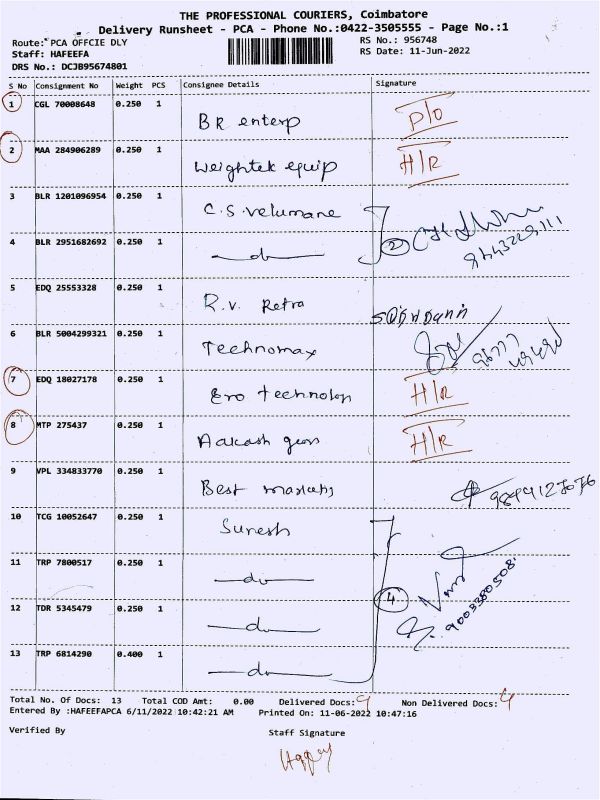 THE PROFESSIONAL COURIERS, Coimbatore
Delivery Runsheet - PCA - Phone No.:0422-3505555 - Page No.:1
Route: PCA OFFCIE DLY
RS No.: 956748
Staff: HAFEEFA
RS Date: 11-Jun-2022
DRS No.: DCJB95674801
S No Consignment No Weight PCS Consignee Details Signature
1 CGL 70008648 0.250 1 BR enterp P/O
2 MAA 284906289 0.250 1 Weightek equip H/R
3 BLR 1201096954 0.250 1 C.S. Velumane
4 BLR 2951682692 0.250 1 —do— 2
5 EDQ 25553328 0.250 1 R.V. Retra
6 BLR 5004299321 0.250 1 Technomax
7 EDQ 18027178 0.250 1 technology H/R
8 MTP 275437 0.250 1 Aakash H/R
9 VPL 334833770 0.250 1 Best
10 TCG 10052647 0.250 1 Suresh
11 TRP 7800517 0.250 1 —do—
12 TDR 5345479 0.250 1 —do— 4 9003380508.
13 TRP 6814290 0.400 1 —do—
Total No. Of Docs: 13 Total COD Amt: 0.00 Delivered Docs: 9 Non Delivered Docs: 4
Entered By :HAFEEFAPCA 6/11/2022 10:42:21 AM Printed On: 11-06-2022 10:47:16
Verified By Staff Signature